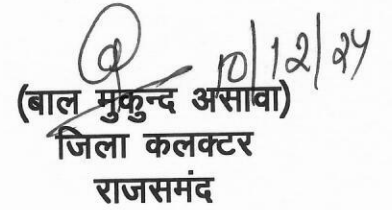 10/12/24
(बाल मुकुन्द असावा)
जिला कलक्टर
राजसमंद